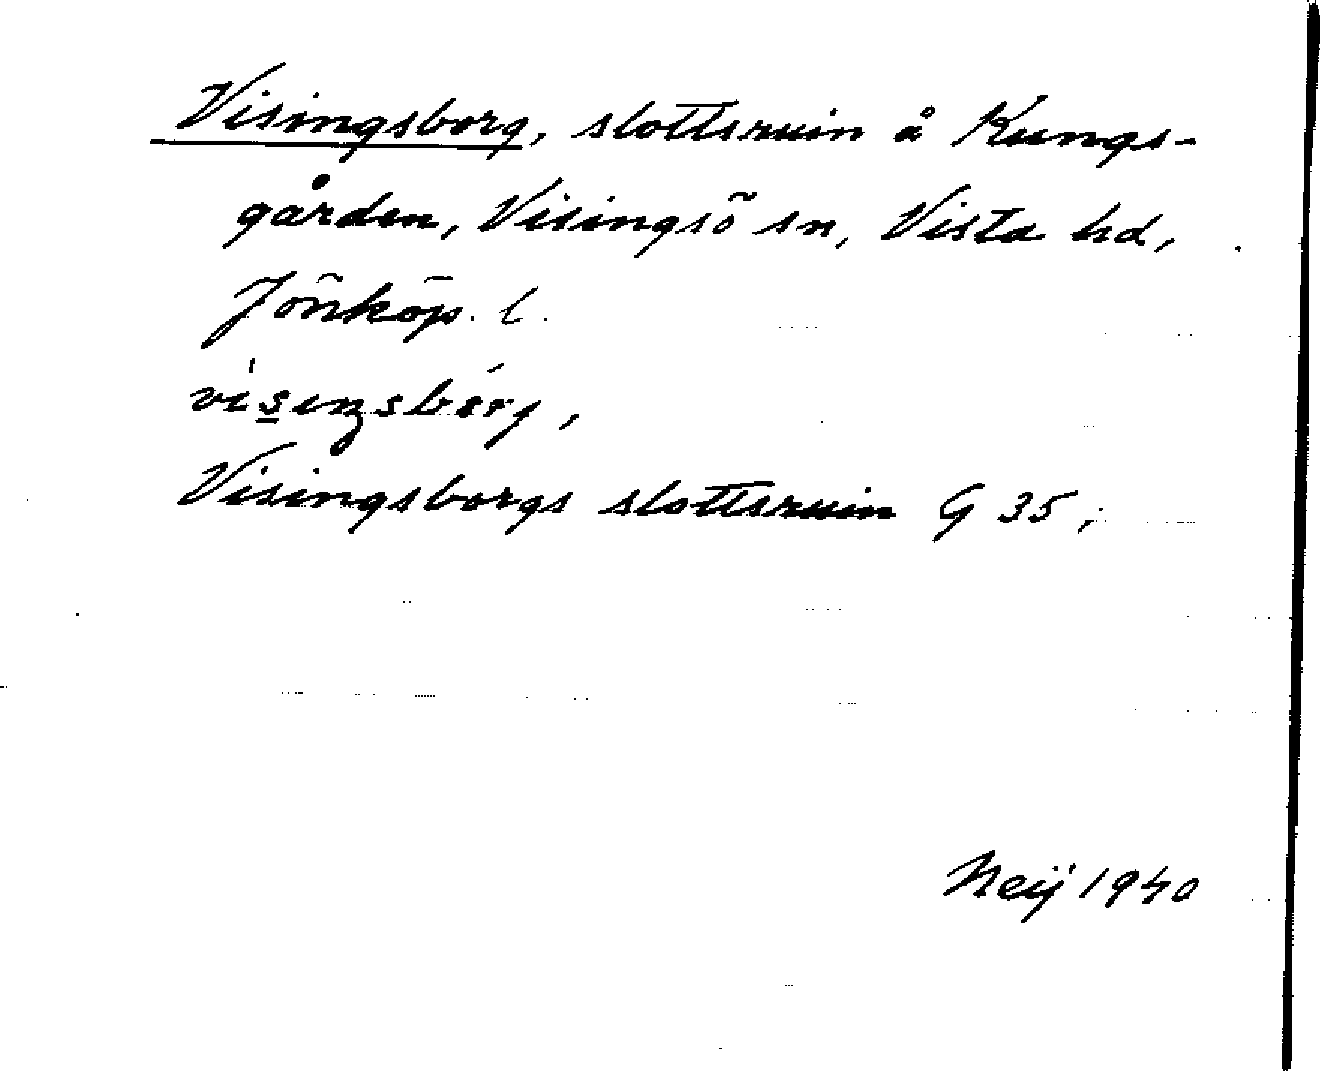 Visingsborg, slottsruin å Kungs-
gården, Visingsö sn, Vista hd,
Jönköp. l.
Visingsborgs slottsruin G 35,
Neij 1940